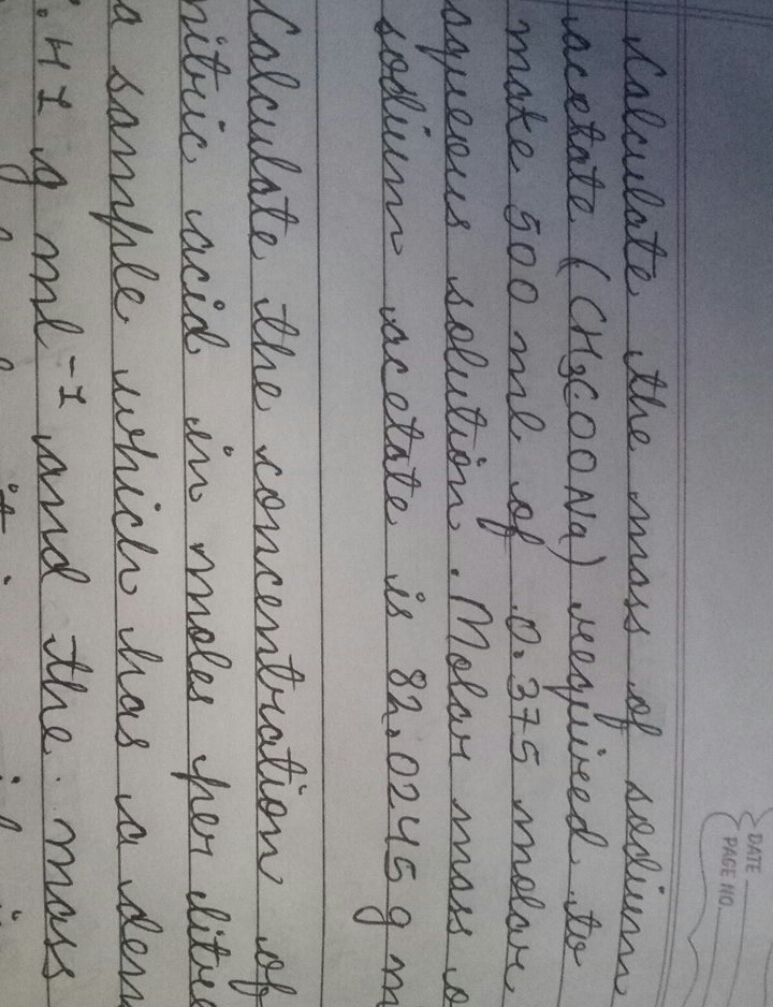 DATE
PAGE NO.
Calculate the mass of sodium
acetate (CH3COONa) required to
make 500 ml of 0.375 molar
aqueous solution. Molar mass o
sodium acetate is 82.0245 g m
Calculate the concentration of
nitric acid in moles per litre
a sample which has a den
.41 g ml-1 and the mass